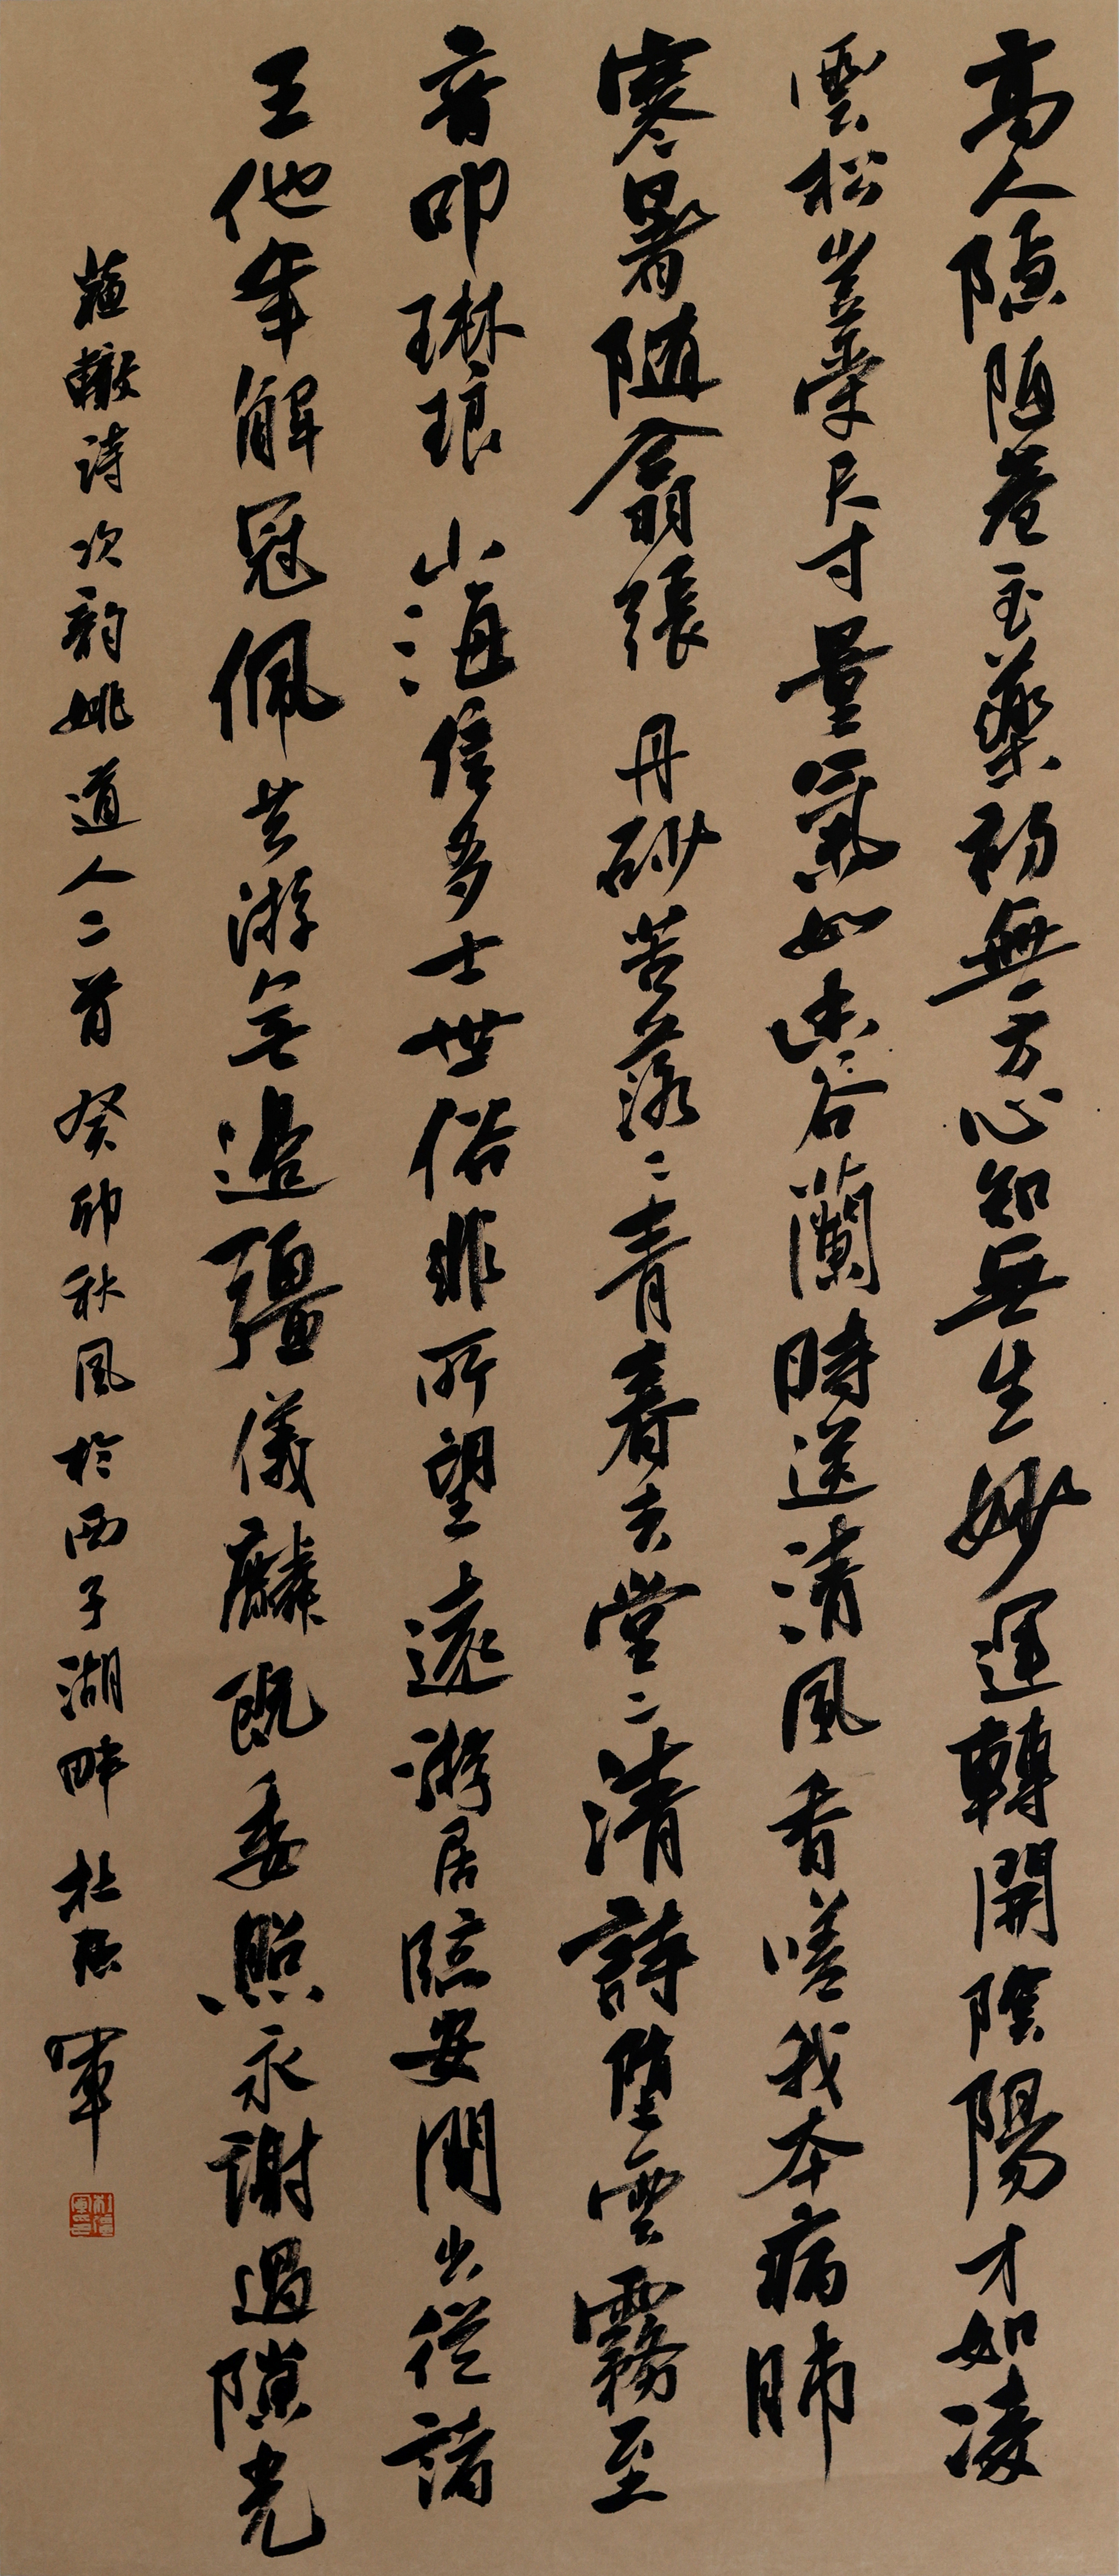 高人隱陋巷至藥初無方心知無生妙運轉開陰陽才如凌
雲松豈受尺寸量氣如幽谷蘭時送清風香嗟我本病肺
寒暑隨翕張丹砂苦落落青春去堂堂清詩墮雲霧至
音叩琳琅山海信多士世俗非所望遠游居臨安閒出從諸
王他年解冠佩共游無邊疆儀麟既委照永謝過隙光
蘇轍詩次韵姚道人二首癸卯秋風於西子湖畔杜 軍